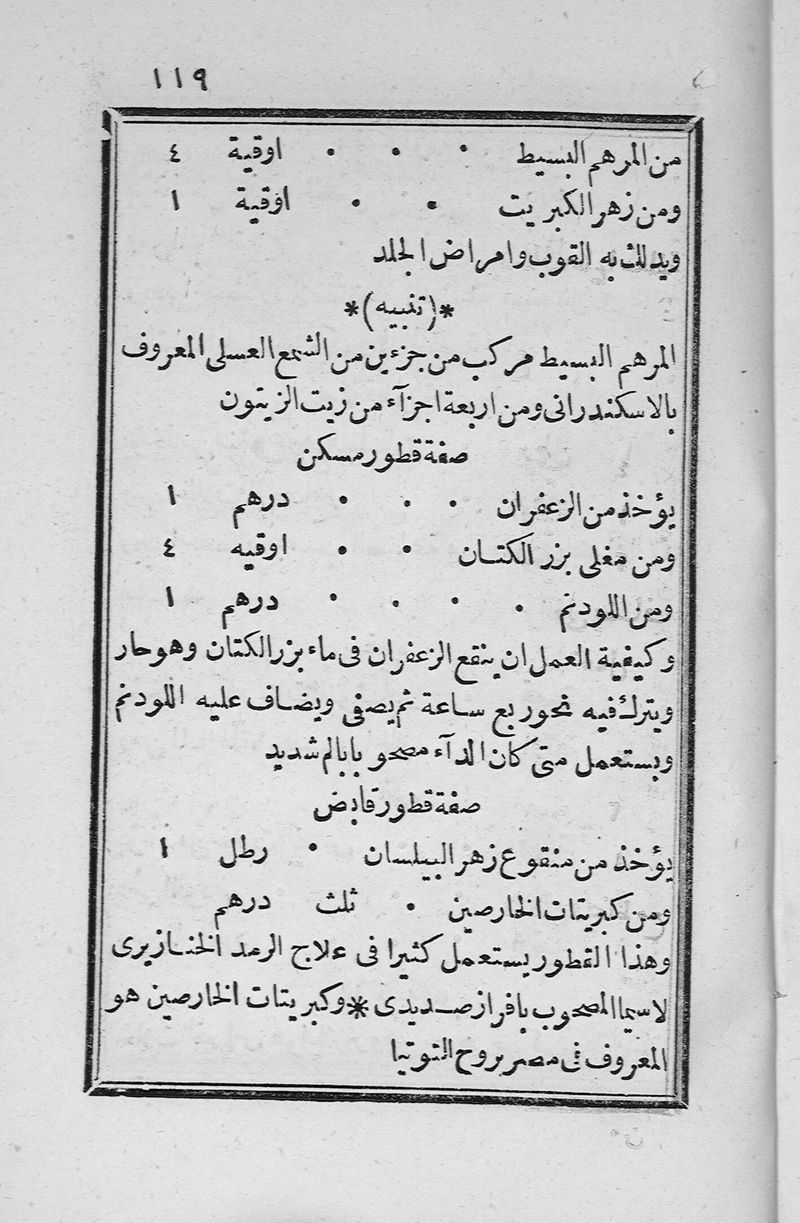 ١١٩
من المرهم البسيط • • • اوقية ٤
ومن زهر الكبريت • • اوقية ١
ويدلك به القوب وامراض الجلد
*(تنبيه)*
المرهم البسيط مركب من جزءين من الشمع العسلى المعروف
بالاسكندرانى ومن اربعة اجزآء من زيت الزيتون
صفة قطور مسكن
يؤخذ من الزعفران • • • درهم ١
ومن مغلى بزر الكتان • • اوقيه ٤
ومن اللودنم • • • • درهم ١
وكيفية العمل ان ينقع الزعفران فى ماء بزر الكتان وهو حار
ويترك فيه نحو ربع ساعة ثم يصفى ويضاف عليه اللودنم
ويستعمل متى كان الدآء مصحوبا بالم شديد
صفة قطور قابض
يؤخذ من منقوع زهر البيلسان • رطل ١
ومن كبريتات الخارصين • ثلث درهم
وهذا القطور يستعمل كثيرا فى علاج الرمد الخنازيرى
لاسيما المصحوب بافراز صديدى * وكبريتات الخارصين هو
المعروف فى مصر بروح التوتيا